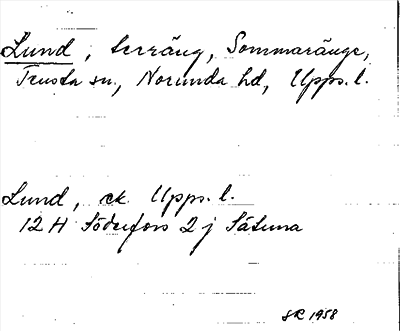 Lund, terräng, Sommaränge,
Tensta sn, Norunda hd, Upps. l.
Lund, ek Upps. l.
12 H Söderfors 2 j Sätuna
SR 1958